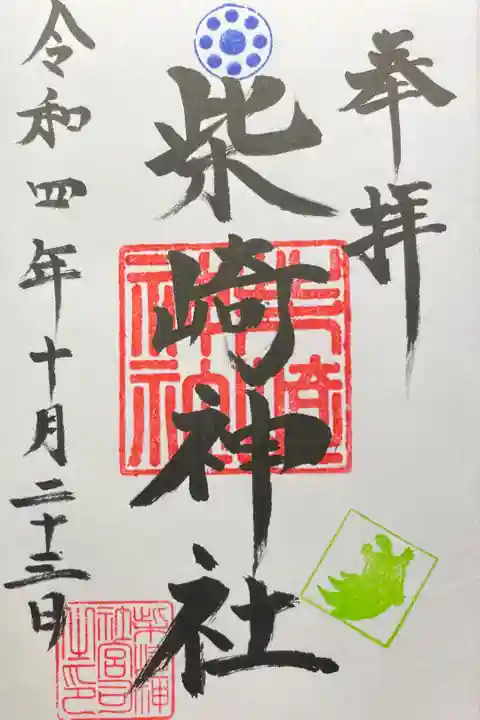 奉拝
柴崎神社
令和四年十月二十三日
柴崎神
社宮司
之印